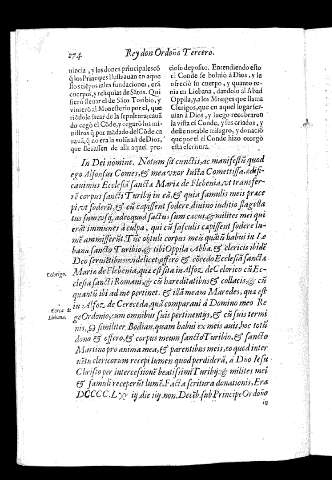 274 Rey don Ordoño Tercero.
nicia, y los dones principales có
q̃ los Principes ilustrauan en aque
llos tiempos tales fundaciones, era
cuerpos, y reliquias de Stos. Qui
siero lleuar el de Sāto Toribio, y
vinierō al Monesterio por el, que
riēdole sacar de la sepultura, cauā
do cegò el Cōde, y cegarō sus mi
nistros
que lleuassen de alla aquel pre-
cioso deposito. Entendiendo esto
el Conde se boluio à Dios, y le
ofrecio su cuerpo, y quanto
tenia en Liebana, dandolo al Abad
Oppila, y a los Monges que llama
Clerigos, que en aquel lugar ser-
uian à Dios, y luego recobraron
la vista el Conde, y los criados, y
deste notable milagro, y donacio
que por el el Conde hizo otorgò
esta escritura.
In Dei nomine. Notum sit cunctis, ac manifestū quod
ego Alfonsus Comes, & mea vxor Iusta Comitissa, ædifi-
cauimus Ecclesiā sancta Maria de Flebenia, vt transfer-
re corpus sancti Turibij in eā, & quia famulis meis præce
pi vt foderēt, & cū cæpissent fodere diuino iudicio flagella
tus sum ego, adeo quod factus sum cæcus, & milites mei qui
erāt immunes à culpa, qui cū fasculis cæpissent fodere lu-
mē ammisserūt. Tūc obtuli corpus meis quātū habui in Le
bana sancto Turibio, & tibi Oppila Abba, & clericis ibidē
Deo seruiētibus, videlicet offero & cōcedo Ecclesiā sanctā
Maria de Flebenia, que est sita in Alfoz de Celorico cū Ec-
clesia sancti Romani, & cū hæreditatibus & collatis, & cū
quantū ibi ad me pertinet. & illā meam Maredes, que est
in Alfoz, de Cereceda, quā comparaui à Domino meo Re
ge Ordonio, cum omnibus suis pertinentijs, & cū suis termi
nis, & similiter Bodian, quam habui ex meis auis, hoc totū
dono & offero, & corpus meum sancto Turibio, & sancto
Martino pro anima mea, & parentibus meis, eo quod inter-
uētu clericorum recepi lumen quod perdideram, a Dño Iesu
Christo per intercessionē beatissimi Turibij, & milites mei
& famuli receperūt lumē. Facta scritura donationis, Era
DCCCC. sub Principe Ordoño
in